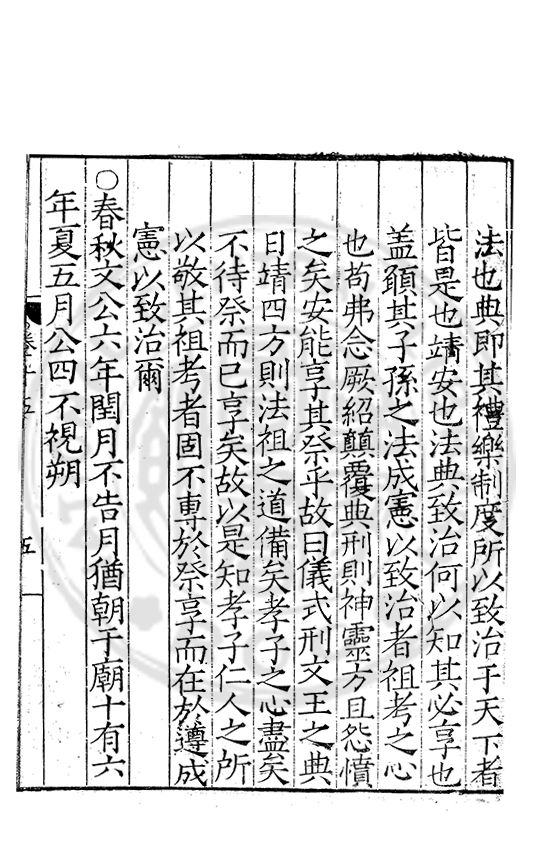 法也典即其禮樂制度所以致治于天下者
皆是也靖安也法典致治何以知其必享也
盖頋其子孫之法成憲以致治者祖考之心
也苟弗念厥紹顛覆典刑則神靈方且怨憤
之矣安能享其祭乎故曰儀式刑文王之典
日靖四方則法祖之道備矣孝子之心盡矣
不待祭而已享矣故以是知孝子仁人之所
以敬其祖考者固不專於祭享而在於遵成
憲以致治爾
○春秋文公六年閏月不告月猶朝于廟十有六
年夏五月公四不視朔
卷十五
五